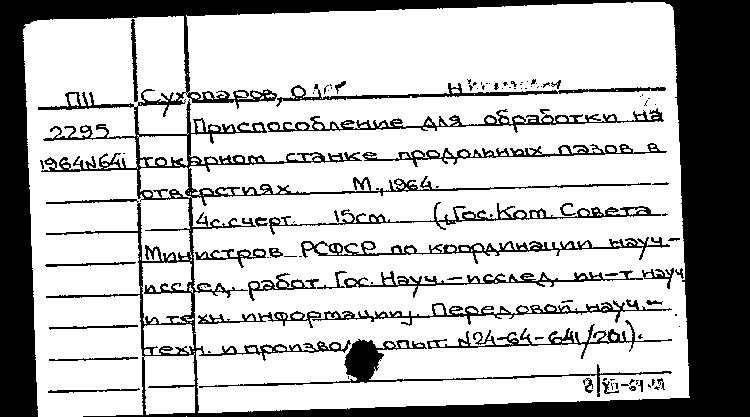 П11 Сухопаров, Олег
2295 Приспособление для обработки на
1964N641 токарном станке продольных пазов в
отверстиях. М., 1964.
4с.счерт. 15cm. (Гос. Ком. Совета
Министров РСФСР по координации науч.-
исслед. работ. Гос. Науч.-исслед. ин-т науч
и техн. информации, Передовой науч.-
техн. и производ. опыт. N24-64-641/201).